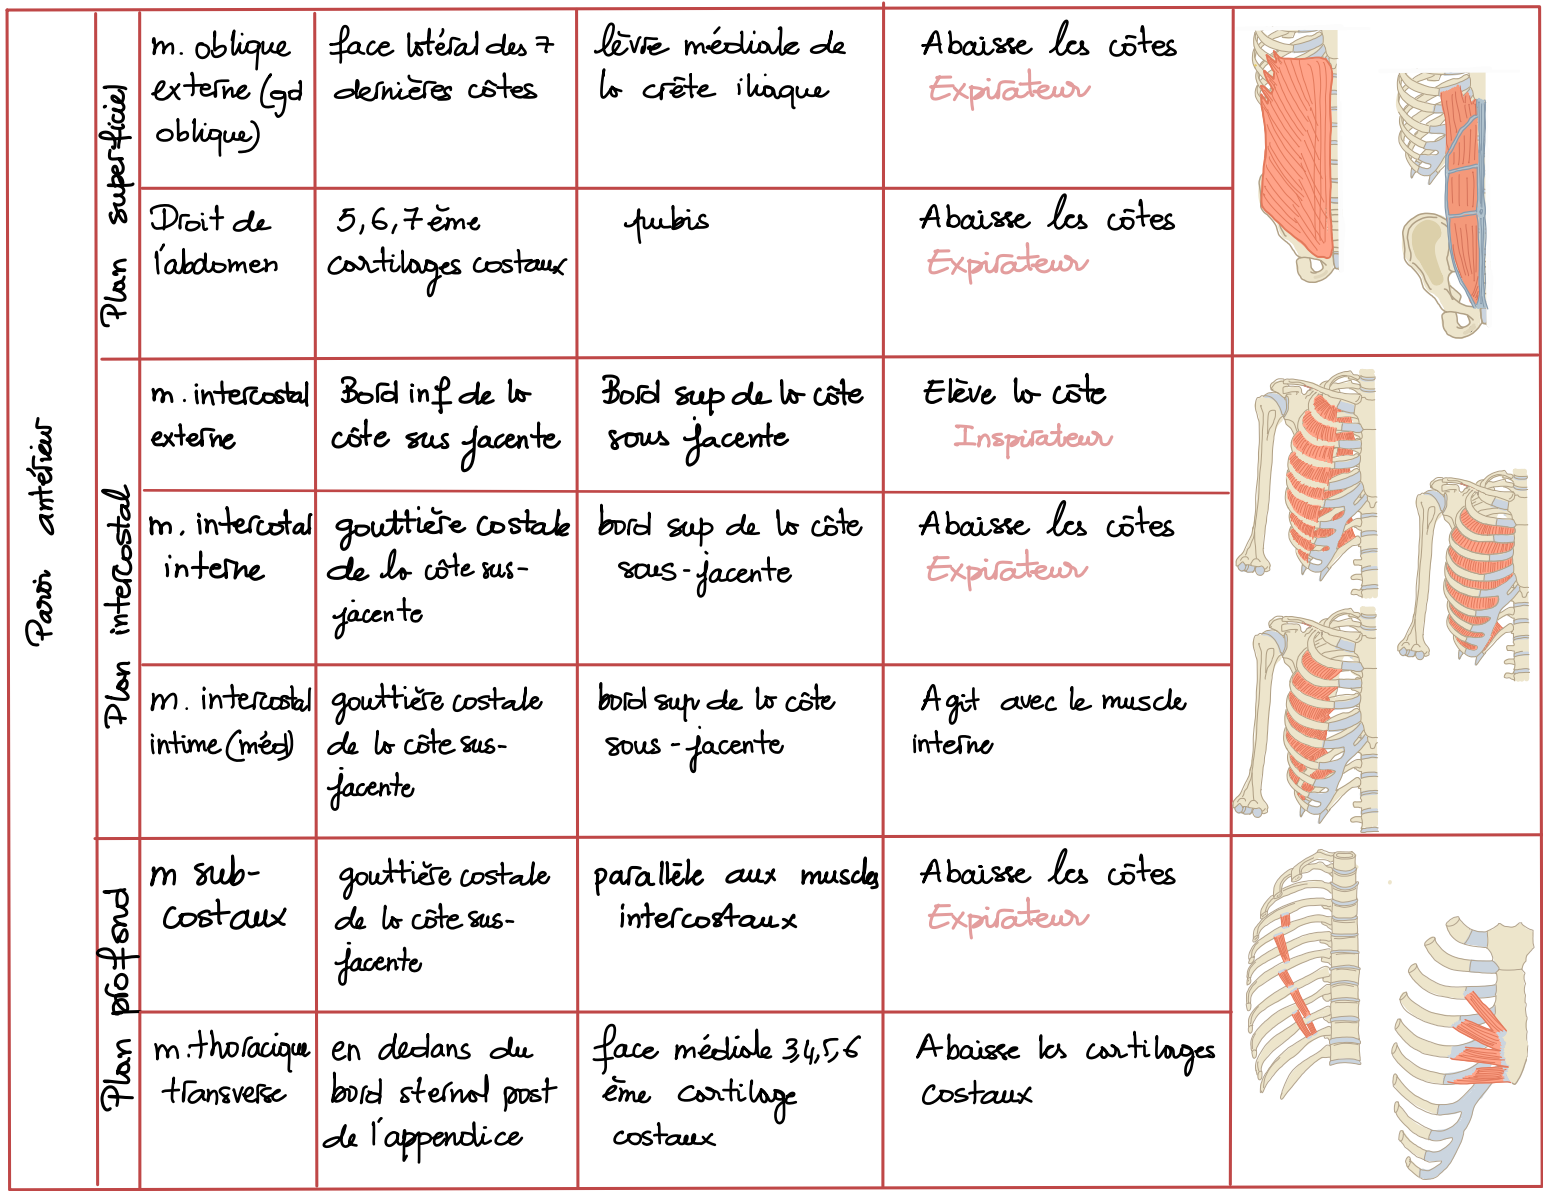 Paroi antérieur
Plan superficiel
m. oblique
externe (gd
oblique)
face latéral des 7
dernières côtes
lèvre médiale de
la crête iliaque
Abaisse les côtes
Expirateur
Droit de
l'abdomen
5, 6, 7 ème
cartilages costaux
pubis
Abaisse les côtes
Expirateur
Plan intercostal
m. intercostal
externe
Bord inf de la
côte sus jacente
Bord sup de la côte
sous jacente
Elève la côte
Inspirateur
m. intercotal
interne
gouttière costale
de la côte sus-
jacente
bord sup de la côte
sous-jacente
Abaisse les côtes
Expirateur
m. intercostal
intime (méd)
gouttière costale
de la côte sus-
jacente
bord sup de la côte
sous-jacente
Agit avec le muscle
interne
Plan profond
m sub-
costaux
gouttière costale
de la côte sus-
jacente
parallèle aux muscles
intercostaux
Abaisse les côtes
Expirateur
m. thoracique
transverse
en dedans du
bord sternal post
de l'appendice
face médiale 3,4,5,6
ème cartilage
costaux
Abaisse les cartilages
costaux